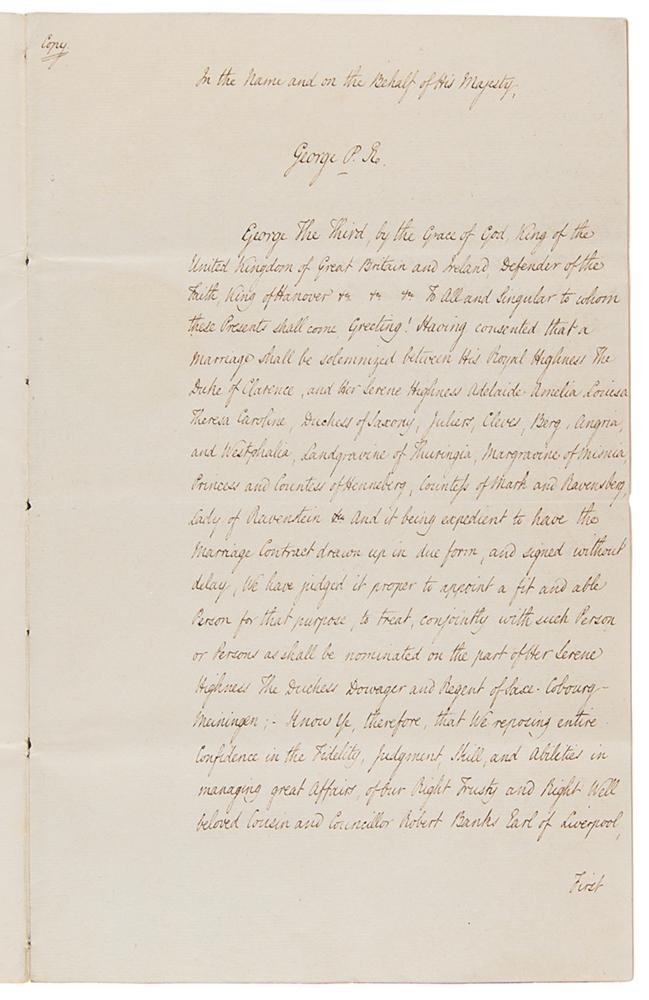 Copy
In the Name and on the Behalf of His Majesty,
George P. R.
George The Third, by the Grace of God, King of the
United Kingdom of Great Britain and Ireland, Defender of the
Faith, King of Hanover &c. &c. &c. To All and Singular to whom
these Presents shall come, Greeting! Having consented that a
Marriage shall be solemnized between His Royal Highness The
Duke of Clarence, and Her Serene Highness Adelaide Amelia Louisa
Theresa Caroline, Duchess of Saxony, Juliers, Cleves, Berg, Angria,
and Westphalia, Landgravine of Thuringia, Margravine of Misnia,
Princess and Countess of Henneberg, Countess of Mark and Ravensberg,
Lady of Ravenstein &c. And it being expedient to have the
Marriage Contract drawn up in due form, and signed without
delay, We have judged it proper to appoint a fit and able
Person for that purpose, to treat, conjointly with such Person
or Persons as shall be nominated on the part of Her Serene
Highness The Duchess Dowager and Regent of Saxe-Cobourg-
Meiningen;- Know Ye, therefore, that We reposing entire
Confidence in the Fidelity, Judgment, Skill, and Abilities in
managing great Affairs, of our Right Trusty and Right Well
beloved Cousin and Councillor Robert Banks Earl of Liverpool,
First